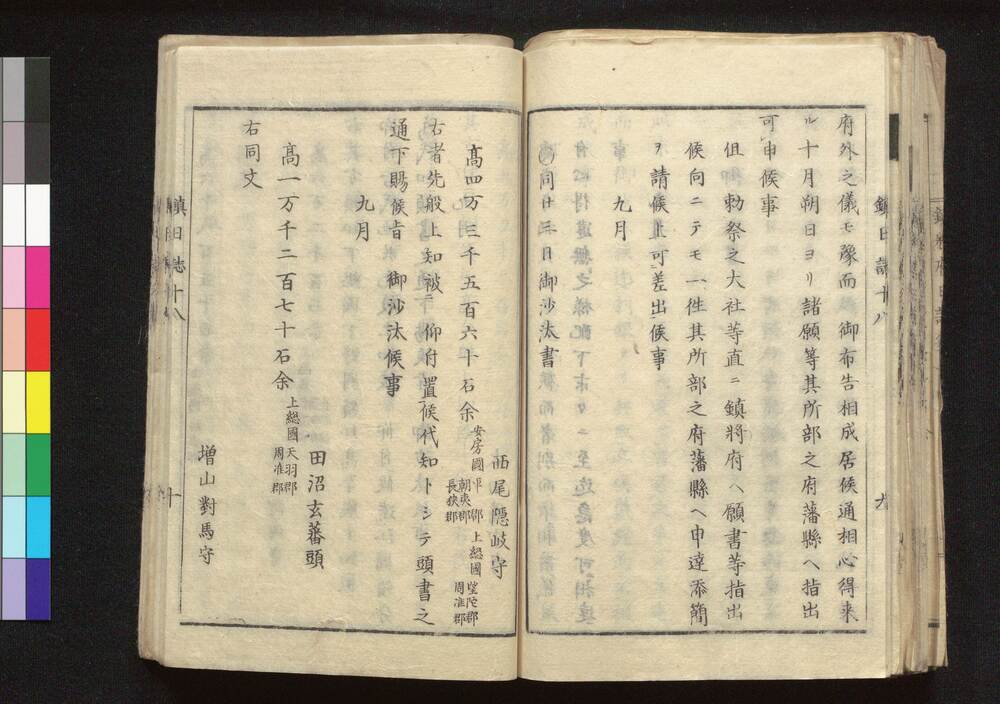 府外之儀モ豫而 御布告相成居候通相心得来
ル十月朔日ヨリ諸願等其所部之府藩縣ヘ指出
可申候事
但勅祭之大社等直ニ鎮將府ヘ願書等指出
候向ニテモ一徃其所部之府藩縣ヘ申達添簡
ヲ請候上可差出候事
九月
同廿三日御沙汰書
西尾隠岐守
髙四万三千五百六十石余 安房國 平郡 朝夷郡 長狹郡 上総國 望陀郡 周准郡
右者先般上知被 仰付置候代知トシテ頭書之
通下賜候旨 御沙汰候事
九月
田沼玄蕃頭
髙一万千二百七十石余 上総國 天羽郡 周准郡
右同文
増山對馬守
鎮日誌十八
九
鎮日誌十八
十